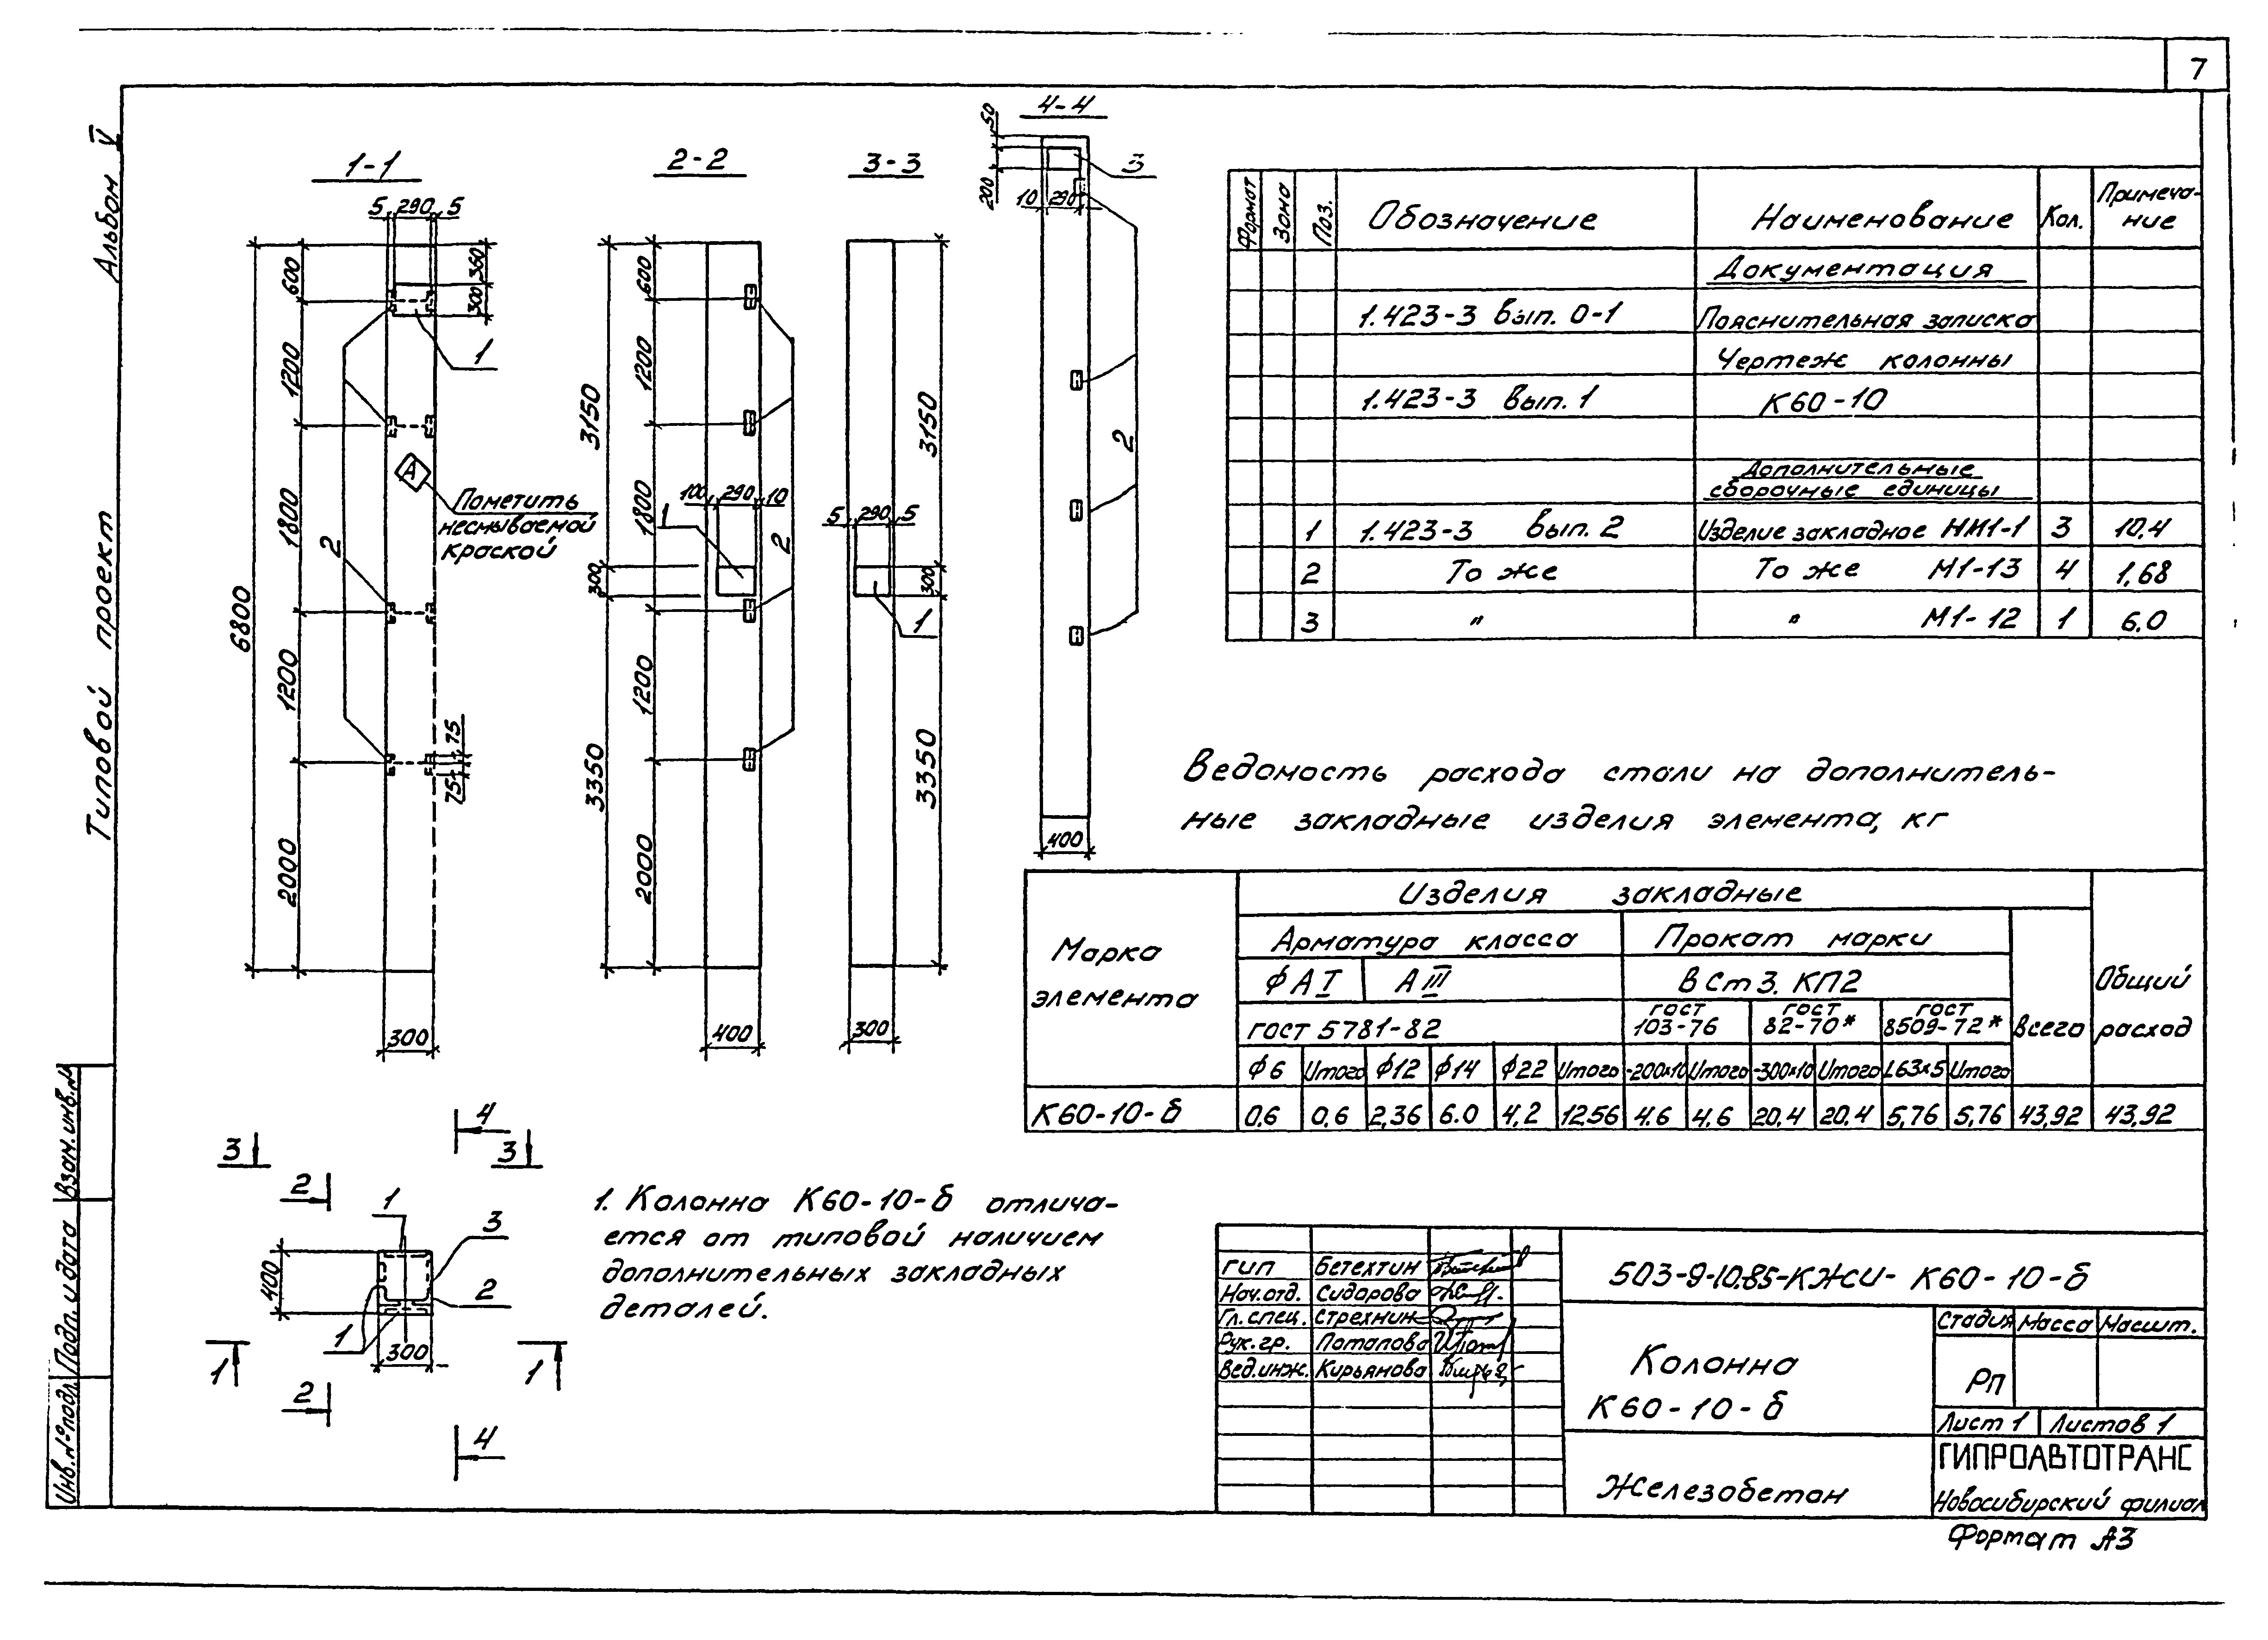 7
Альбом V
Типовой проект
Взам.инв.№
Подп. и дата
Инв.№подл.
1-1
5 290 5
600
360
300
1
1200
А
Пометить
несмываемой
краской
1800
2
6800
1200
75
75
2000
300
2-2
600
1200
3150
100 290 10
1
1800
2
300
1200
3350
2000
400
3-3
3150
5 290 5
300
1
3350
300
4-4
50
3
200
10 290
2
400
Формат
Зона
Поз.
Обозначение
Наименование
Кол.
Примеча-
ние
Документация
1.423-3 Вып. 0-1 Пояснительная записка
Чертеж колонны
1.423-3 Вып. 1 К60-10
Дополнительные
сборочные единицы
1 1.423-3 Вып. 2 Изделие закладное НИ1-1 3 10,4
2 То же То же М1-13 4 1,68
3 " " М1-12 1 6.0
Ведомость расхода стали на дополнитель-
ные закладные изделия элемента, кг
Марка
элемента
Изделия закладные
Арматура класса Прокат марки
ф А I А III В Ст 3. КП2
гост 5781-82
гост
103-76
гост
82-70*
гост
8509-72*
Всего
Общий
расход
ф6 Итого ф12 ф14 ф22 Итого -200х10 Итого -300х10 Итого L63х5 Итого
К60-10-б 0,6 0,6 2,36 6.0 4,2 12.56 4.6 4.6 20,4 20,4 5,76 5,76 43,92 43,92
4
3 3
2
1
3
2
1
400
300
1 1
2
4
1. Колонна К60-10-б отлича-
ется от типовой наличием
дополнительных закладных
деталей.
ГИП Бетехтин
Нач.отд. Сидарова
Гл.спец. Стрехнин
Рук.гр. Потапова
Вед.инж. Кирьянова
503-9-10.85-КЖИ- К60-10-б
Колонна
К60-10-б
Стадия Масса Масшт.
РП
Лист 1 Листов 1
Железобетон
ГИПРОАВТОТРАНС
Новосибирский филиал
Формат А3